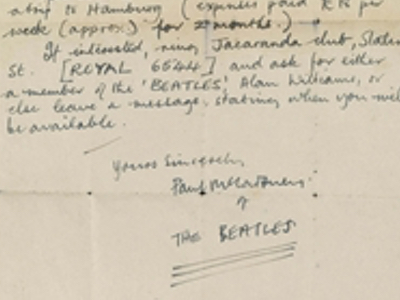 a trip to Hamburg (expenses paid £18 per
week (approx.) for 2 months.)
If interested, ring Jacaranda club, Slater
St. [ROYAL 6544] and ask for either
a member of the 'BEATLES', Alan Williams, or
else leave a message, stating when you will
be available.
Yours Sincerely,
Paul McCartney
of
THE BEATLES